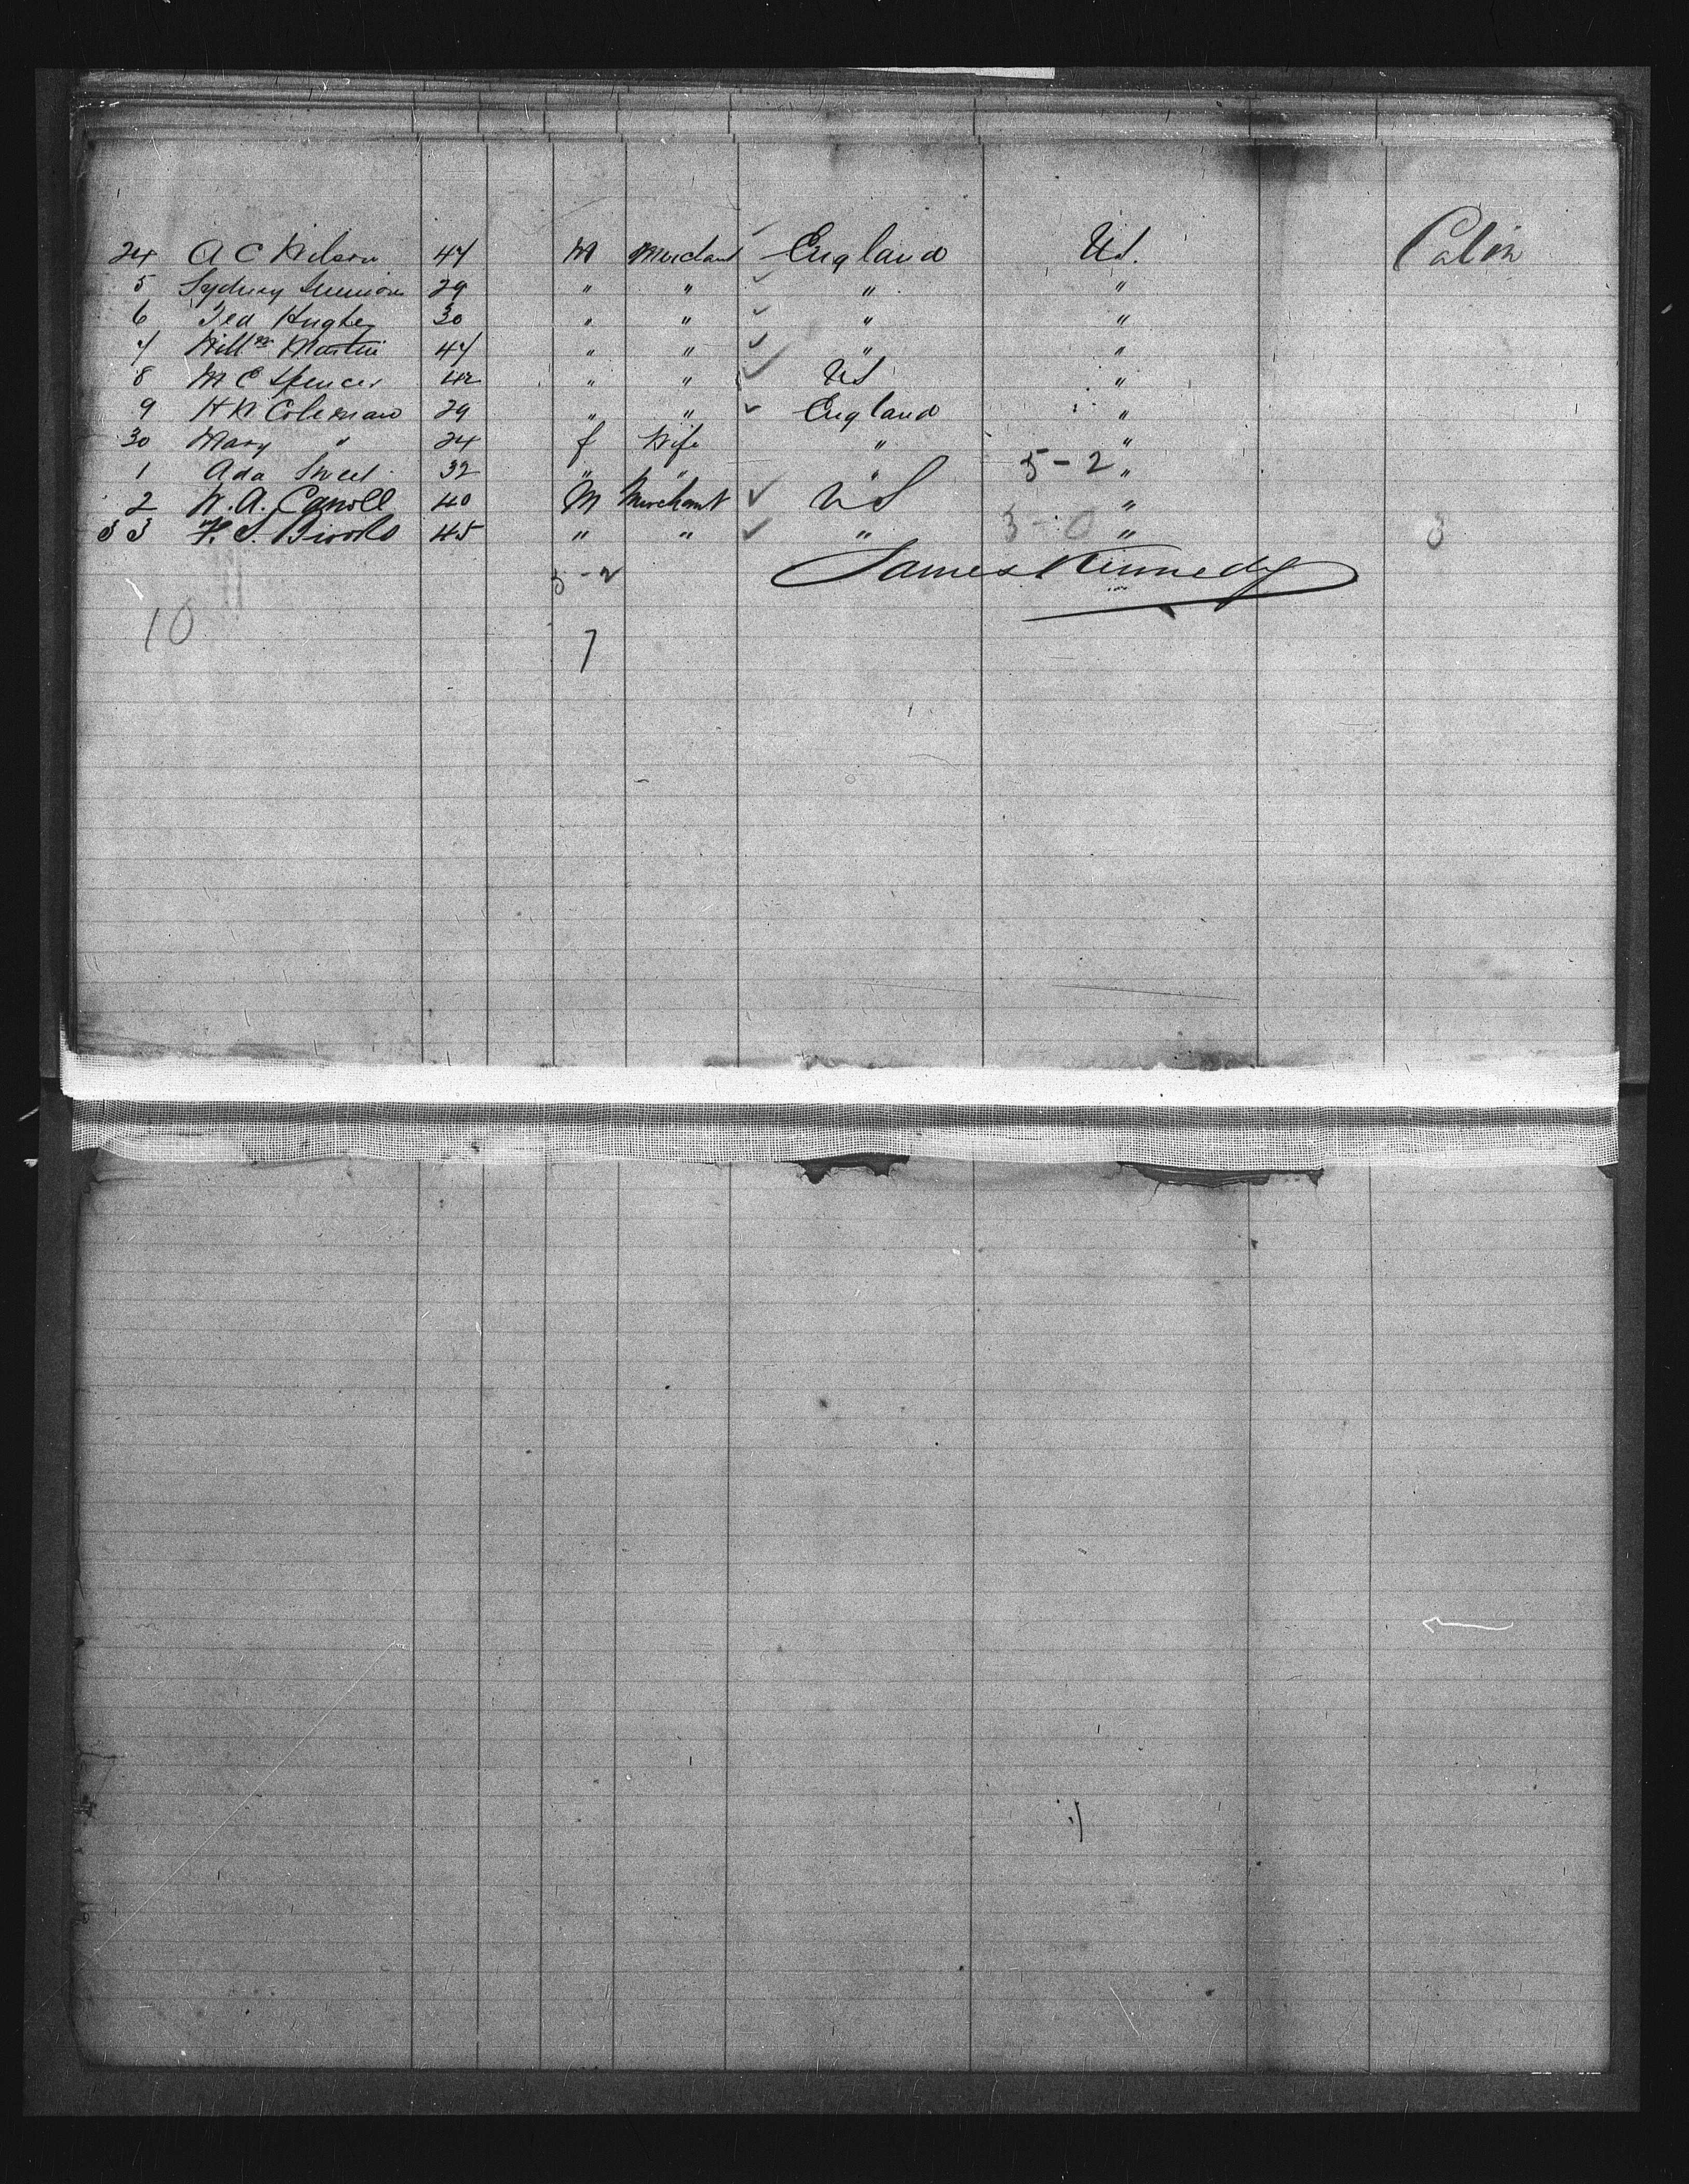 24 A C Wilson 47 M Merchant England U.S. Cabin
5 Sydney 29 " " " "
6 Ted Hughes 30 " " " "
7 Willm Martin 47 " " " "
8 M C Spencer 42 " " US "
9 H N Coleman 29 " " England "
30 Mary " 24 f Wife " "
1 Ada Sweet 32 " " " 5-2 "
2 W. A. Carroll 40 M Merchant US "
33 F. S. Brooks 45 " " " 3-0 " 8
5-2 James Kennedy
10
7